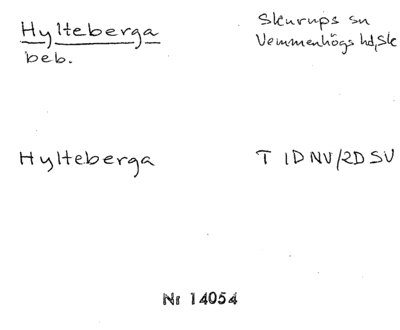 Hylteberga
beb.
Skurups sn
Vemmenhögs hd, Sk
Hylteberga
T 1D NV/2D SV
Nr 14054